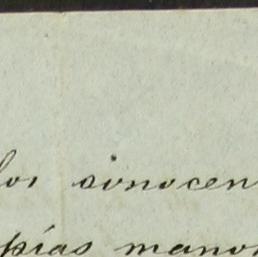 los sonocen
pias mano